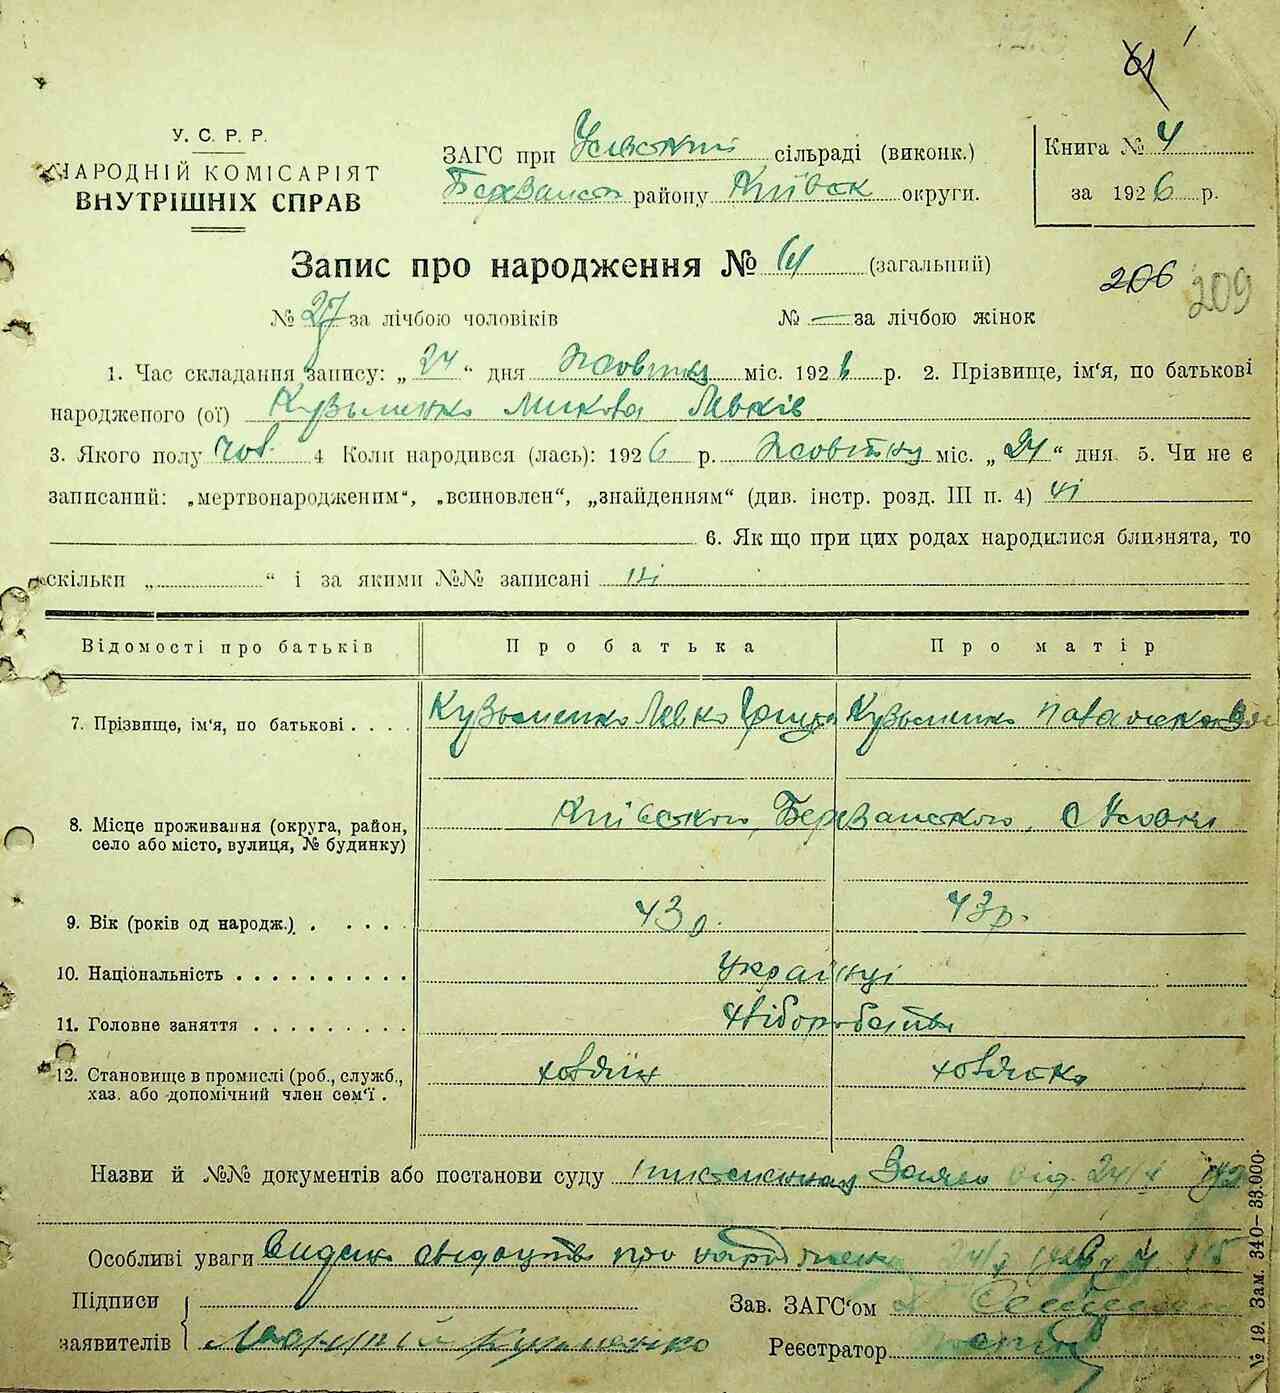 У. С. Р. Р.
НАРОДНІЙ КОМІСАРІЯТ
ВНУТРІШНІХ СПРАВ
ЗАГС при сільраді (виконк.)
району Київськ округи.
Книга № 4
за 1926 р.
Запис про народження № 61 (загальний)
206 209
№ 27 за лічбою чоловіків № — за лічбою жінок
1. Час складання запису: „ 24 “ дня Жовтня міс. 1926 р. 2. Прізвище, ім'я, по батькові
народженого (ої) Кузьменко Микола Левків
3. Якого полу чол. 4 Коли народився (лась): 1926 р. Жовтня міс. „ 24 “ дня. 5. Чи не є
записаний: „мертвонародженим“, „всиновлен“, „знайденням“ (див. інстр. розд. III п. 4) ні
6. Як що при цих родах народилися близнята, то
скільки „ “ і за якими №№ записані ні
Відомості про батьків Про батька Про матір
7. Прізвище, ім'я, по батькові . . . . Кузьменко Левко Кузьменко
8. Місце проживання (округа, район, село або місто, вулиця, № будинку) Київського,
9. Вік (років од народж.) . . . . . 43 р. 43 р.
10. Національність . . . . . . . . . . Українці
11. Головне заняття . . . . . . . . . Хліборобство
12. Становище в промислі (роб., служб., хаз. або допомічний член сем'ї .
Назви й №№ документів або постанови суду
Особливі уваги про
Підписи Зав. ЗАГС'ом
заявителів Кузьменко Реєстратор
№ 19. Зам. 340—33.000